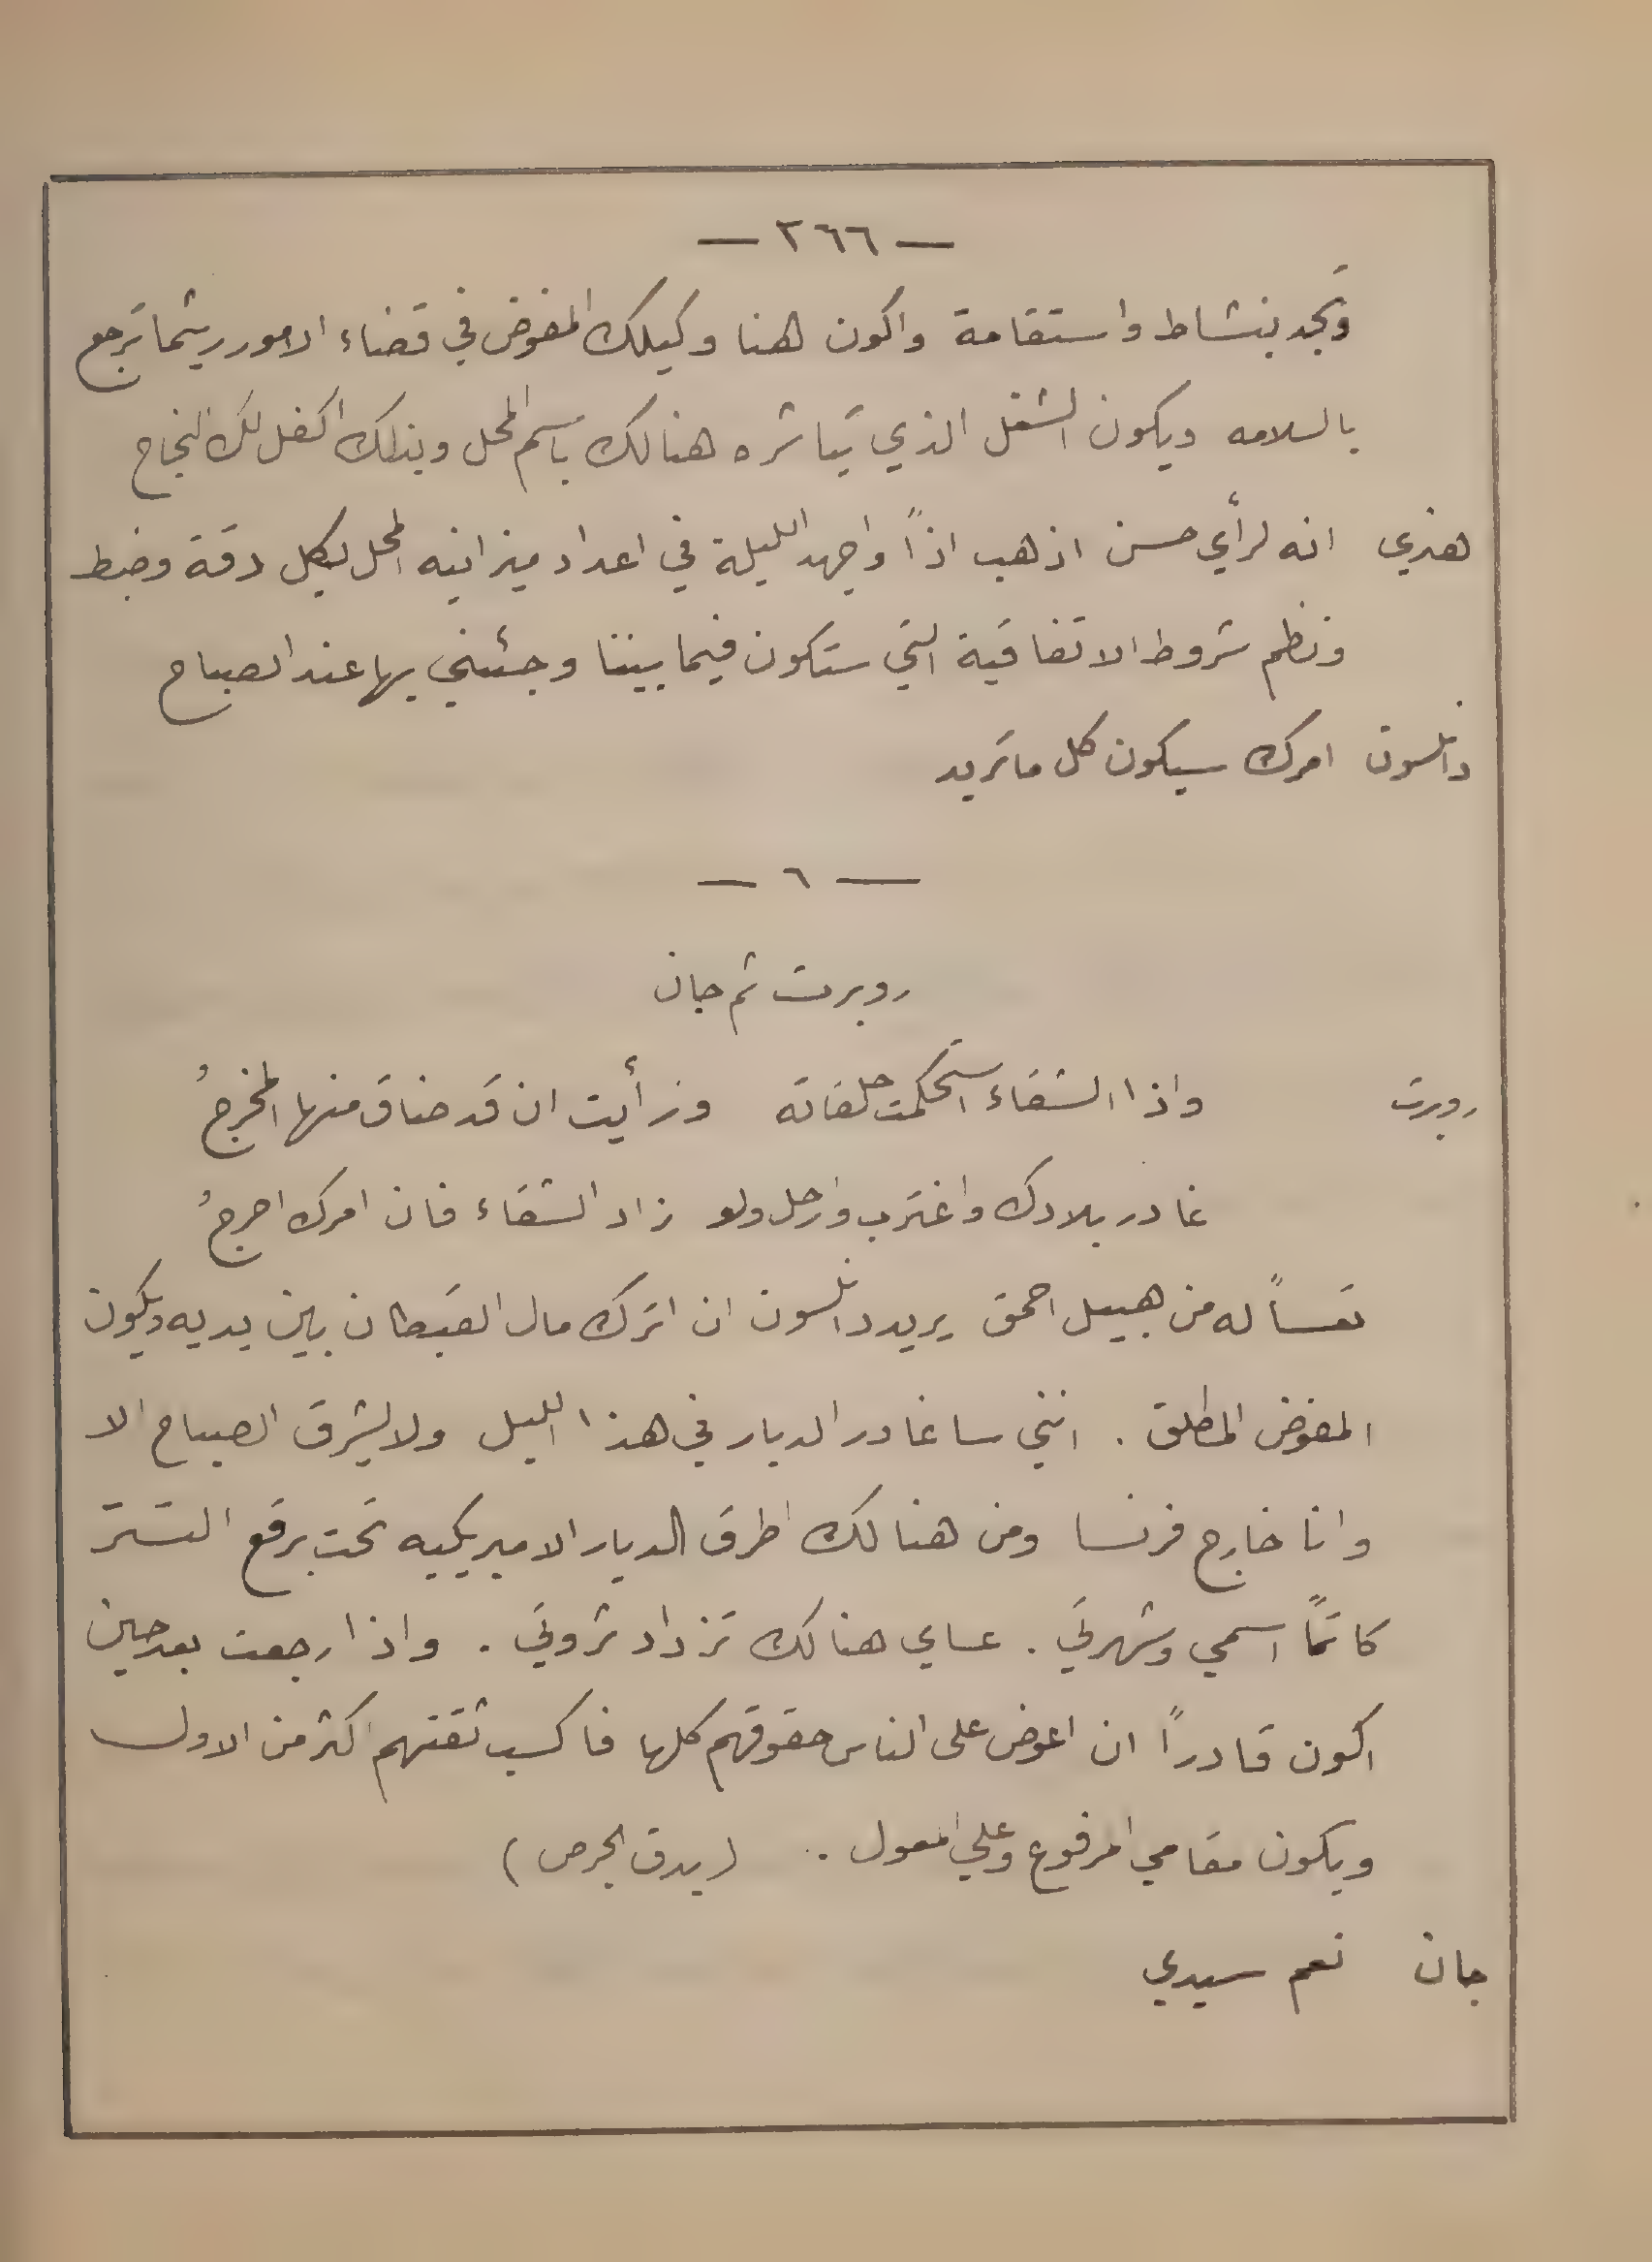 — ٢٦٦ —
وتجد بنشاط واستقامة واكون هنا وكيلك المفوض في قضاء الامور ريثما ترجع
بالسلامه ويكون الشغل الذي تباشره هنالك باسم المحل وبذلك اكفل لك النجاح
هنري انه لرأي حسن اذهب اذاً واجهد الليلة في اعداد ميزانيه المحل لبكل دقة وضبط
ونظم شروط الاتفاقية التي ستكون فيما بيننا وجئني بها عند الصباح
دانلسون امرك سيكون كل ما تريد
— ٦ —
روبرت ثم جان
روبرت واذا الشقاء استحكمت حلقاته ورأيت ان قد ضاق منها المخرجُ
غادر بلادك واغترب وارحل ولو زاد الشقاء فان امرك احرجُ
تعساً له من هبيل احمق يريد دانلسون ان اترك مال القبطان بين يديه ويكون
المفوض المطلق . انني ساغادر الديار في هذا الليل ولا يشرق الصباح الا
وانا خارج فرنسا ومن هنالك اطرق الديار الاميريكيه تحت برقع التستر
كاتماً اسمي وشهرتي . عساي هنالك تزداد ثروتي . واذا رجعت بعد حين
اكون قادراً ان اعوض على الناس حقوقهم كلها فاكسب ثقتهم اكثر من الاول
ويكون مقامي المرفوع وعلي المعول .. (يدق الجرص)
جان نعم سيدي